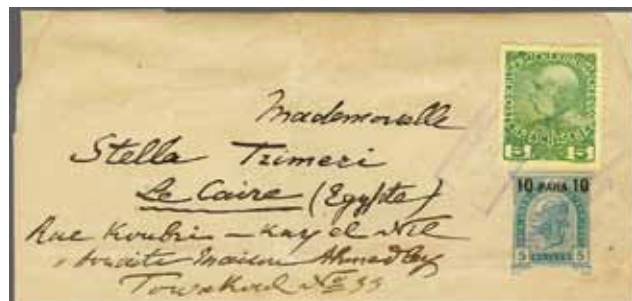 Mademoiselle
Stella Tzimeri
Le Caire (Egypte)
Rue Koubri – Kasr el Nil
Maison Ahmed bey
No 33
5 5
10 PARA 10
5 5